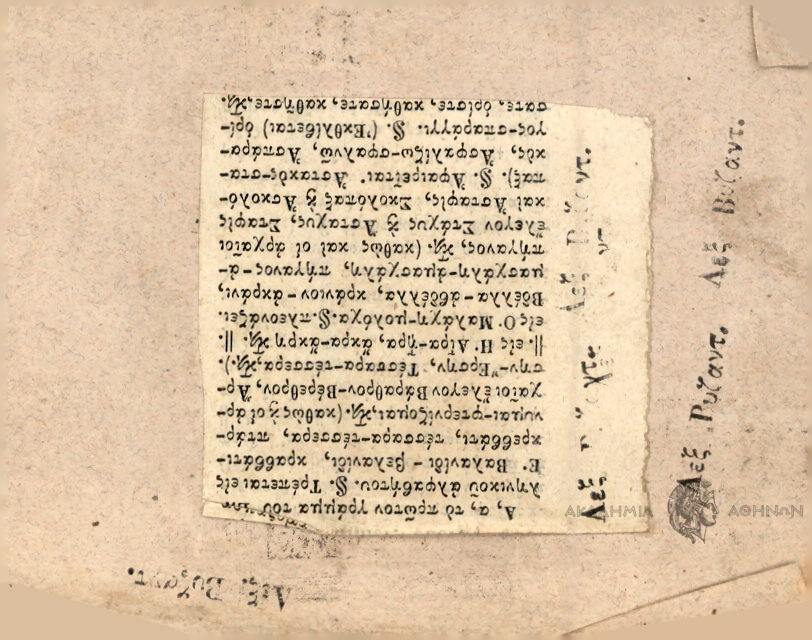 Α, α, τὸ πρῶτον γράμμα τοῦ
ληνικοῦ ἀλφαβήτου. §. Τρέπεται εἰς
Ε· Βαλανίδι - βελανίδι, κραββάτι-
κρεββάτι, τέσσαρα-τέσσερα, πτάρ-
νυμαι-φτερνίζομαι, ϗτ. (καθὼς ϗ οἱ ἀρ-
χαῖοι ἔλεγον Βάραθρον-Βέρεθρον, Ἄρ-
σην-Ἔρσην, Τέσσαρα-τέσσερα, ϗτ.).
||. εἰς Η· Αἴρα-ἤρα, ἄκρα-ἄκρη ϗτ. ||.
εἰς Ο· Μαλάχη-μολόχα. §. πλεονάζει.
Βδέλλα-ἀβδέλλα, κράνιον-ἀκράνι,
μασχάλη-ἀμασχάλη, πήγανος-ἀ-
πήγανος, ϗτ. (καθὼς καὶ οἱ ἀρχαῖοι
ἔλεγον Στάχυς ϗ Ἄσταχυς, Σταφὶς
καὶ Ἀσταφὶς, Σκολόπαξ ϗ Ἀσκολό-
παξ). §. Ἀφαιρεῖται. Ἀστακὸς-στα-
κὸς, Ἀσφαλίζω-σφαλνῶ, Ἀσπάρα-
γος-σπαράγγι. §. (Ἐκθλίβεται) ὁρί-
σατε, ὁρίστε, καθήσατε, καθῆστε, ϗτ.
Λεξ
Βυζαντ.
Λεξ Βυζαντ.
Λεξ Βυζαντ.
Λεξ. Βυζαντ.
ΑΚΑΔΗΜΙΑ ΑΘΗΝΩΝ